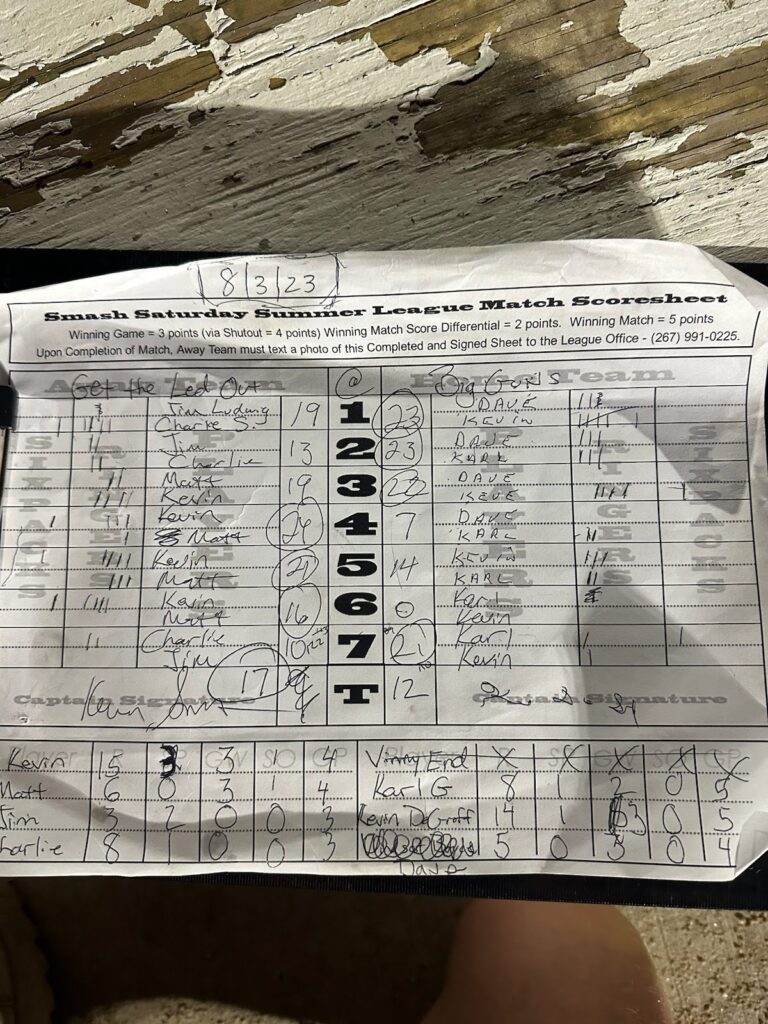 8 | 3 | 23
Smash Saturday Summer League Match Scoresheet
Winning Game = 3 points (via Shutout = 4 points) Winning Match Score Differential = 2 points. Winning Match = 5 points
Upon Completion of Match, Away Team must text a photo of this Completed and Signed Sheet to the League Office - (267) 991-0225.
Get the Led Out @ Big GUNS
Jim Ludwig 19 1 23 DAVE
Charlie S. KEVIN
Jim 13 2 23 DAVE
Charlie KARL
Matt 19 3 22 DAVE
Kevin KEVE
Kevin 4 7 DAVE
Matt KARL
Kevin 21 5 14 KEVIN
Matt KARL
Kevin 16 6 0 Karl
Matt Kevin
Charlie 10 7 21 Karl
Jim Kevin
17 T 12
Captain Signature Captain Signature
Kevin 15 3 3 1 4 Vinny End X X X X X
Matt 6 0 3 1 4 Karl G 8 1 2 0 5
Jim 3 2 0 0 3 Kevin DeGroff 14 1 3 0 5
Charlie 8 0 0 3 5 0 3 0 4
Dave